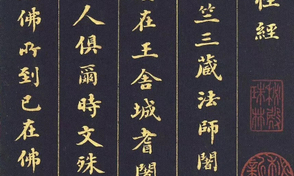 性經
竺三藏法師闍
在王舍城耆闍
人俱爾時文殊
佛所到已在佛